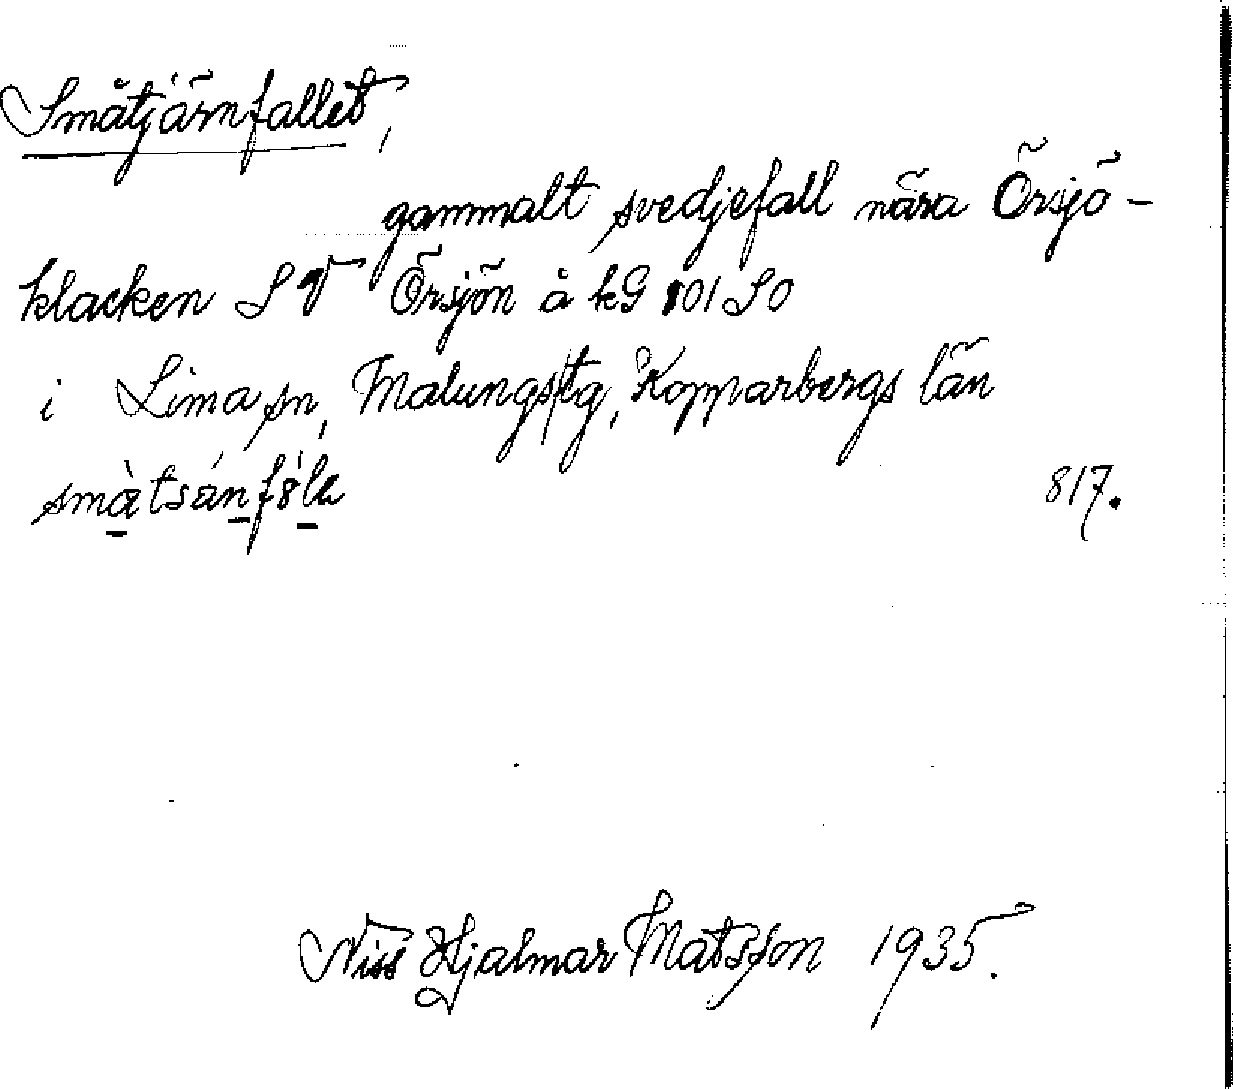 Småtjärnfallet,
gammalt svedjefall nära Örsjö-
klacken SV Örsjön å kG 101 SO
i Lima sn, Malungs tg, Kopparbergs län
817.
Niss Hjalmar Matsson 1935.